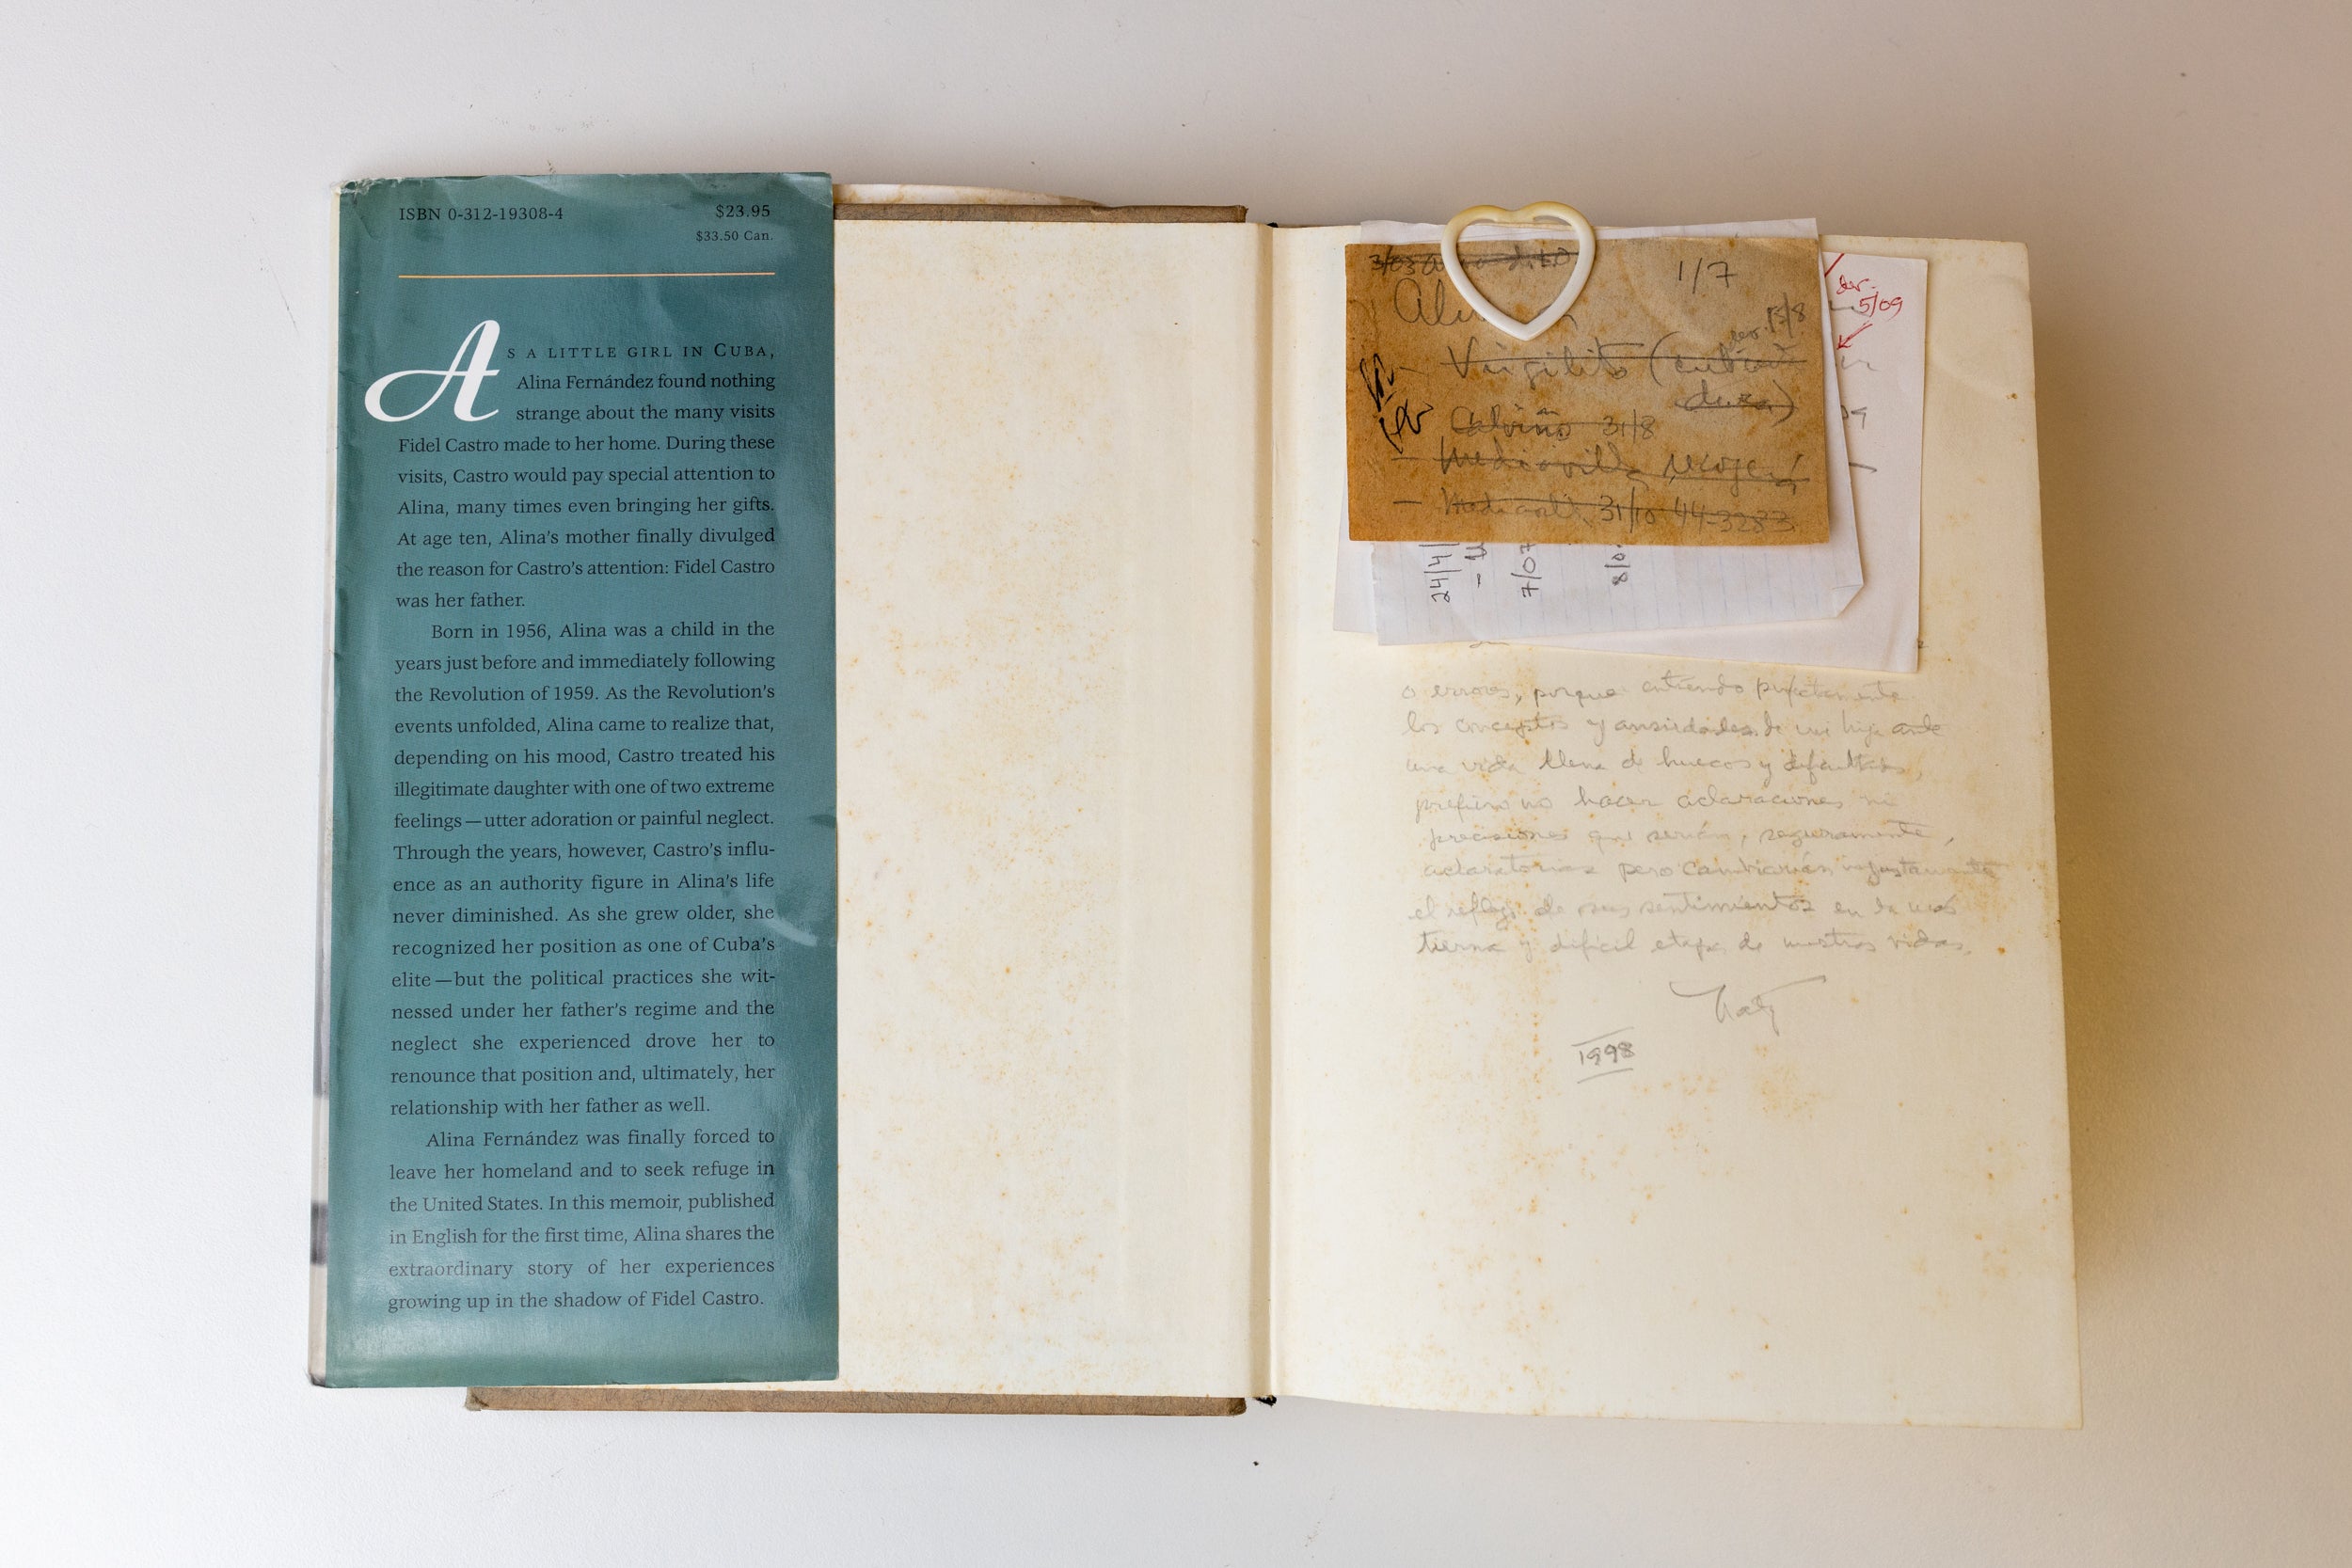 ISBN 0-312-19308-4
$23.95
$33.50 Can.
AS A LITTLE GIRL IN CUBA,
Alina Fernández found nothing
strange about the many visits
Fidel Castro made to her home. During these
visits, Castro would pay special attention to
Alina, many times even bringing her gifts.
At age ten, Alina's mother finally divulged
the reason for Castro's attention: Fidel Castro
was her father.
Born in 1956, Alina was a child in the
years just before and immediately following
the Revolution of 1959. As the Revolution's
events unfolded, Alina came to realize that,
depending on his mood, Castro treated his
illegitimate daughter with one of two extreme
feelings—utter adoration or painful neglect.
Through the years, however, Castro's influ-
ence as an authority figure in Alina's life
never diminished. As she grew older, she
recognized her position as one of Cuba's
elite—but the political practices she wit-
nessed under her father's regime and the
neglect she experienced drove her to
renounce that position and, ultimately, her
relationship with her father as well.
Alina Fernández was finally forced to
leave her homeland and to seek refuge in
the United States. In this memoir, published
in English for the first time, Alina shares the
extraordinary story of her experiences
growing up in the shadow of Fidel Castro.
1/7
13/8
Virgilito
Calviño 31/8
Mediavilla
31/10 44-3283
5/09
24/4
7/07
o errores, porque entiendo perfectamente
los conceptos y ansiedades de mi hija ante
una vida llena de huecos y dificultades,
prefiero no hacer aclaraciones ni
precisiones que serían, seguramente,
aclaratorias pero cambiarían injustamente
el reflejo de sus sentimientos en la más
tierna y difícil etapa de nuestras vidas.
Naty
1998